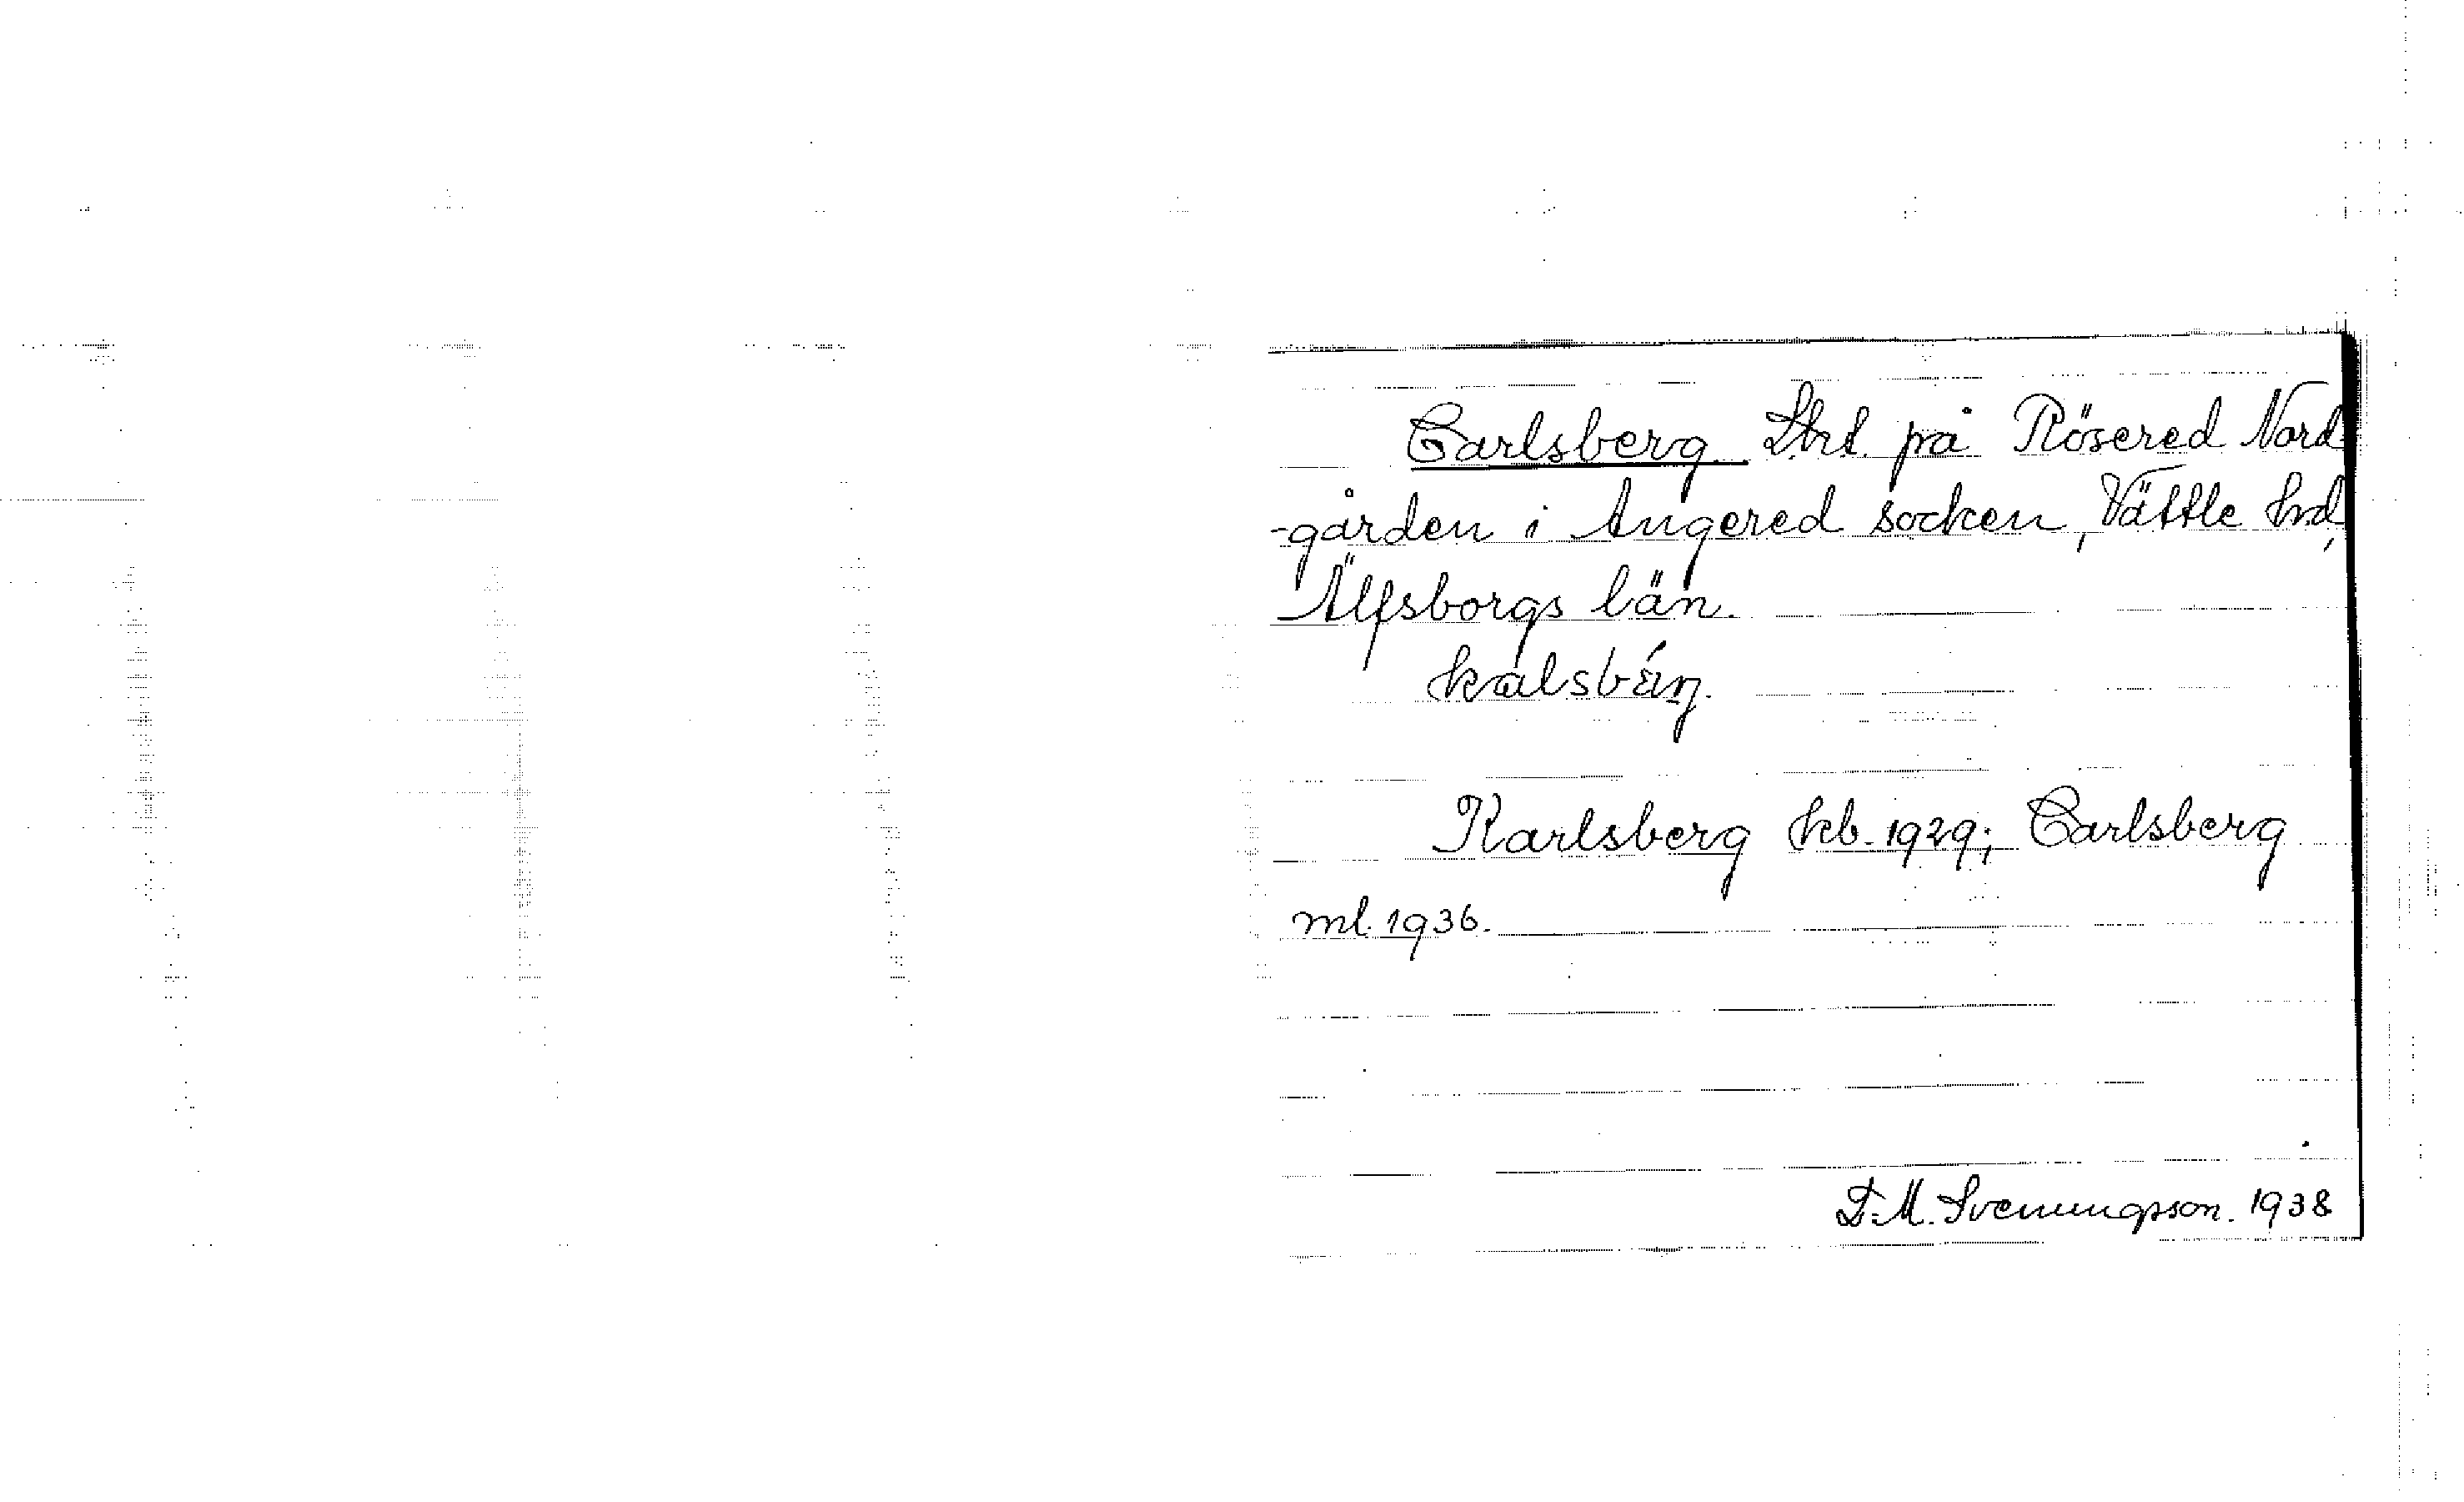 Carlsberg Lht. på Rösered Nord
-gården i Angered socken, Vättle hd,
Älfsborgs län.
Karlsberg kb. 1929; Carlsberg
ml. 1936.
D. M. Svenungsson. 1938